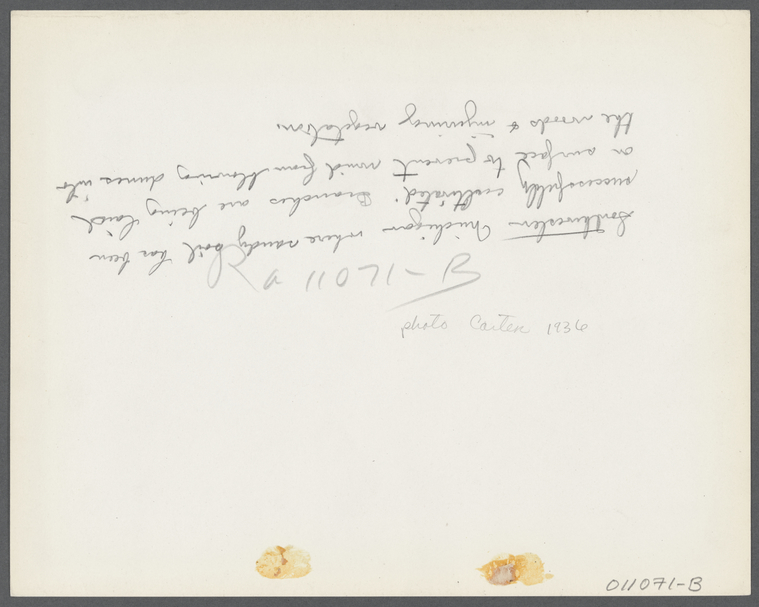 Southwestern Michigan where sandy soil has been
successfully cultivated. Branches are being laid
on surface to prevent wind from blowing dunes into
the woods & injuring vegetation.
Ra 11071-B
photo Carter 1936
011071-B